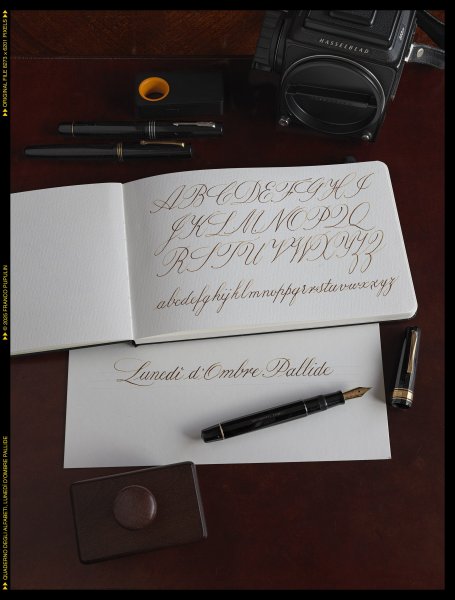 HASSELBLAD
A B C D E F G H I
J K L M N O P Q Q
R S T U V W X Y Z Z
abcdefghijklmnopqrstuvwxyz
Lunedì d'Ombre Pallide
QUADERNO DEGLI ALFABETI, LUNEDÌ D'OMBRE PALLIDE
© 2025 FRANCO PUPULIN
ORIGINAL FILE 6275 x 8201 PIXELS